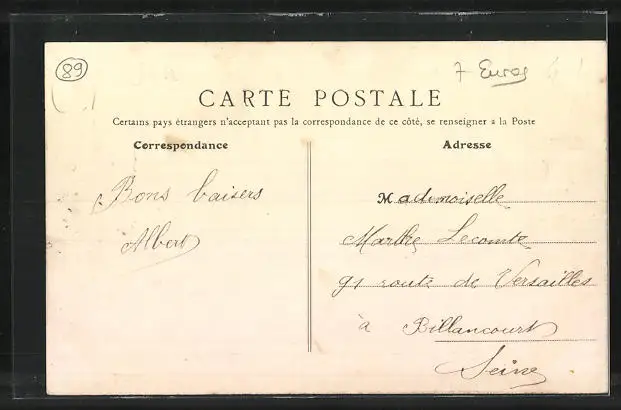 89
7 Euros
CARTE POSTALE
Certains pays étrangers n'acceptant pas la correspondance de ce côté, se renseigner a la Poste
Correspondance
Adresse
Bons baisers
Albert
Mademoiselle
Marthe Lecomte
91 route de Versailles
à Billancourt
Seine